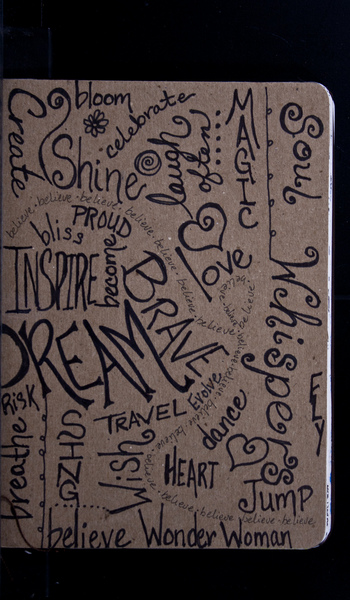 bloom
celebrate
Create
Shine
laugh
often
MAGIC
Soul
believe·believe·believe·believe·believe·believe·believe
PROUD
bliss
become
INSPIRE
Love
BRAVE
DREAM
Whispers
FLY
Risk
TRAVEL
Evolve
dance
breathe
SING
Wish
HEART
Jump
believe·believe·believe·believe
believe Wonder Woman